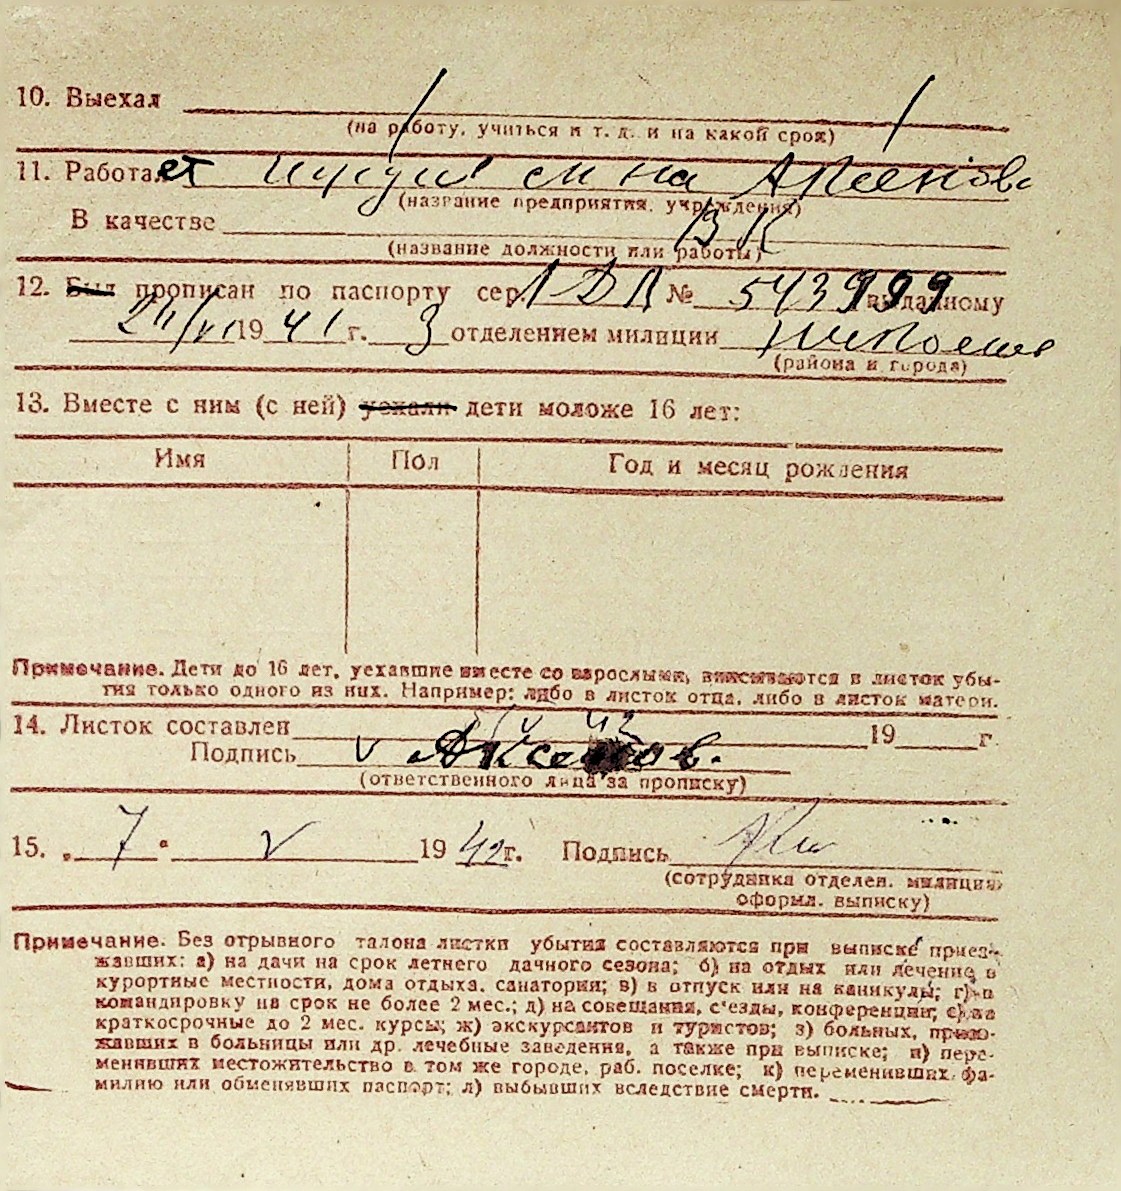 10. Выехал
(на работу, учиться и т. д. и на какой срок)
11. Работает на Аксенова
(название предприятия, учреждения)
В качестве ВК
(название должности или работы)
12. Был прописан по паспорту сер. № 543999 выданному
1941 г. 3 отделением милиции
(района и города)
13. Вместе с ним (с ней) уехали дети моложе 16 лет:
Имя Пол Год и месяц рождения
Примечание. Дети до 16 лет, уехавшие вместе со взрослыми, вписываются в листок убы-
тия только одного из них. Например: либо в листок отца, либо в листок матери.
14. Листок составлен 19 г.
Подпись v Аксенов.
(ответственного лица за прописку)
15. „ 7 " V 1942 г. Подпись
(сотрудника отделен. милиции,
оформл. выписку)
Примечание. Без отрывного талона листки убытия составляются при выписке приез-
жавших: а) на дачи на срок летнего дачного сезона; б) на отдых или лечение в
курортные местности, дома отдыха, санатории; в) в отпуск или на каникулы; г) в
командировку на срок не более 2 мес.; д) на совещания, с'езды, конференции; е) на
краткосрочные до 2 мес. курсы; ж) экскурсантов и туристов; з) больных, приез-
жавших в больницы или др. лечебные заведения, а также при выписке; и) пере-
менивших местожительство в том же городе, раб. поселке; к) переменивших фа-
милию или обменявших паспорт; л) выбывших вследствие смерти.